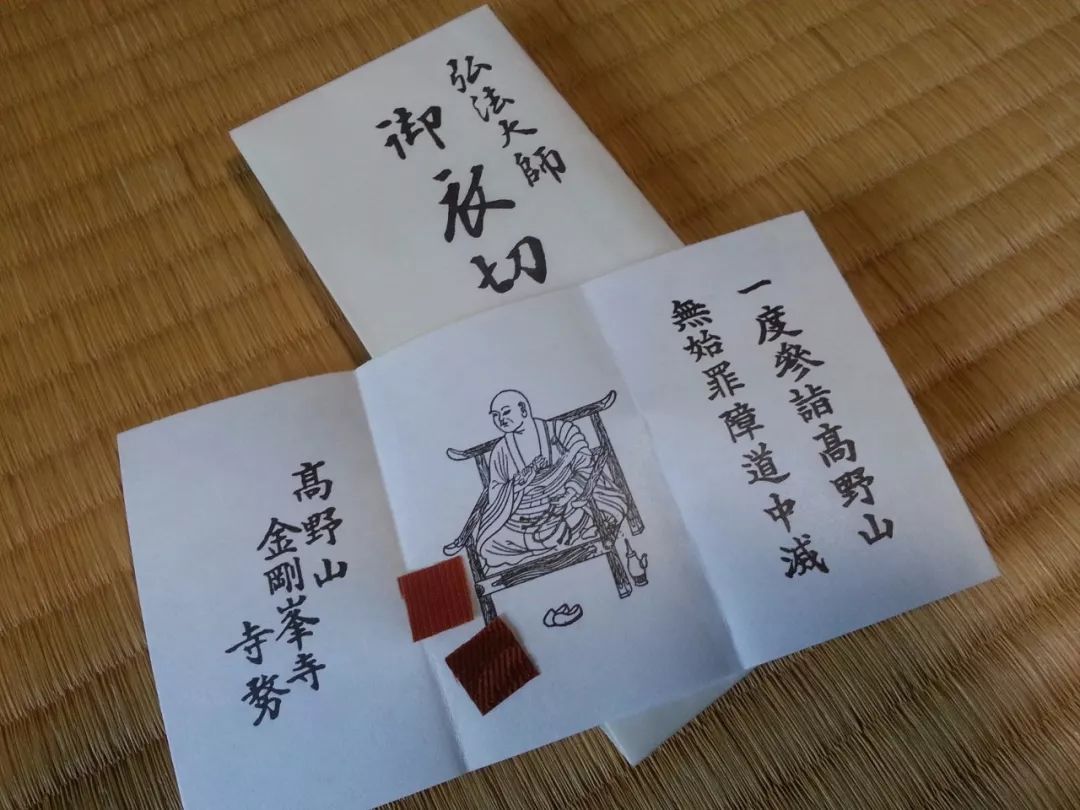 弘法大師
御衣切
一度參詣高野山
無始罪障道中滅
高野山
金剛峯寺
寺務